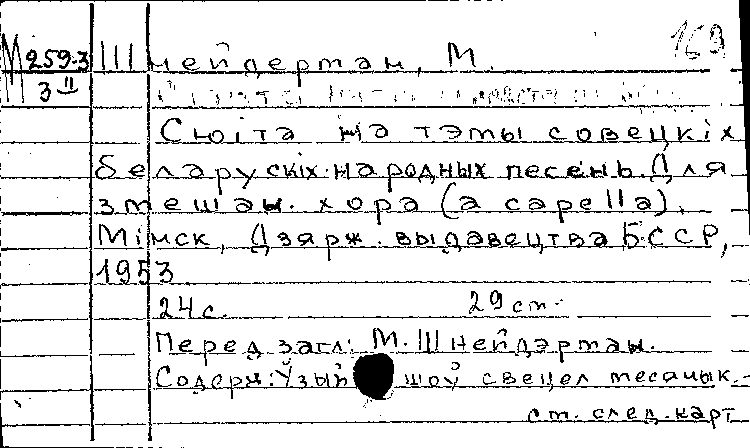 169
М 259-3
3 II
Шнейдерман, М.
Сюіта на тэмы совецкіх
беларускіх народных песень. Для
змешан. хора (a capella).
Мінск, Дзярж. выдавецтва БССР,
1953
24 с. 29 cm.
Перед загл: М. Шнейдэрман.
Содерж: Ўзый шоў свецел месячык.
ст. след. карт